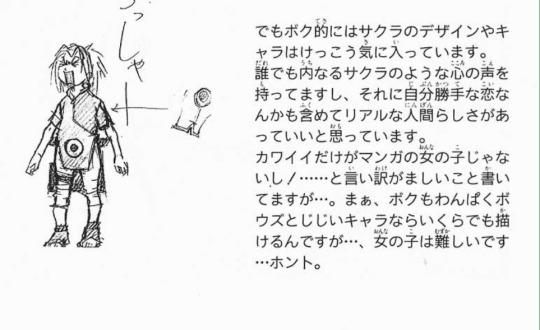 っしゃ
でもボク的にはサクラのデザインやキ
ャラはけっこう気に入っています。
誰でも内なるサクラのような心の声を
持ってますし、それに自分勝手な恋な
んかも含めてリアルな人間らしさがあ
っていいと思っています。
カワイイだけがマンガの女の子じゃな
いし！……と言い訳がましいこと書い
てますが…。まぁ、ボクもわんぱくボ
ウズとじじいキャラならいくらでも描
けるんですが…、女の子は難しいです
…ホント。